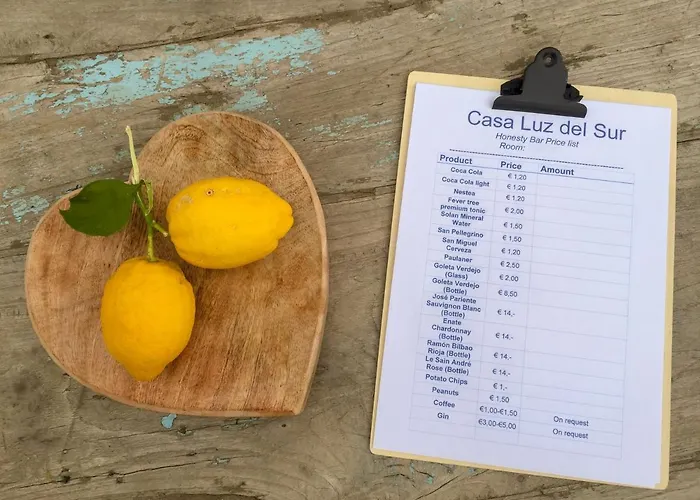 Casa Luz del Sur
Honesty Bar Price list
Room:
Product Price Amount
Coca Cola € 1,20
Coca Cola light € 1,20
Nestea € 1,20
Fever tree
premium tonic € 2,00
Solan Mineral
Water € 1,50
San Pellegrino € 1,50
San Miguel
Cerveza € 1,20
Paulaner € 2,50
Goleta Verdejo
(Glass) € 2,00
Goleta Verdejo
(Bottle) € 8,50
José Pariente
Sauvignon Blanc
(Bottle) € 14,-
Enate
Chardonnay
(Bottle) € 14,-
Ramón Bilbao
Rioja (Bottle) € 14,-
Le Sain André
Rose (Bottle) € 14,-
Potato Chips € 1,-
Peanuts € 1.50
Coffee €1,00-€1,50 On request
Gin €3,00-€5,00 On request